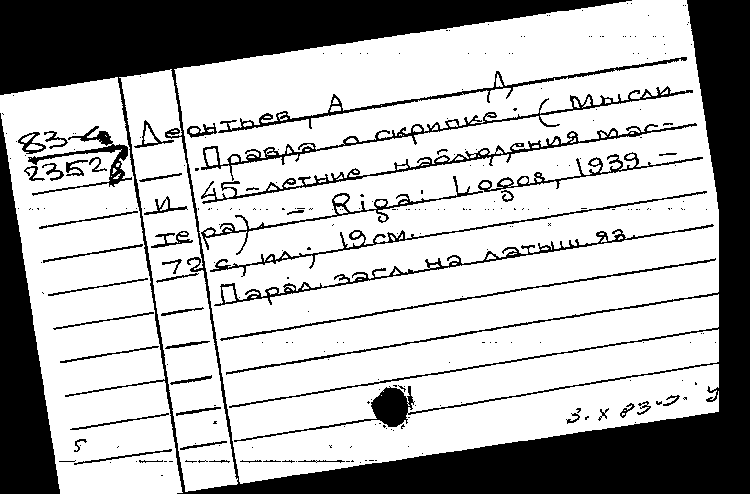 83-
23528
Леонтьев, А Д,
Правда о скрипке: (Мысли
и 45-летние наблюдения мас-
тера). - Riga: Logos, 1939. -
72 с, ил.; 19 см.
Парал. загл. на латыш. яз.
3. X 83
5